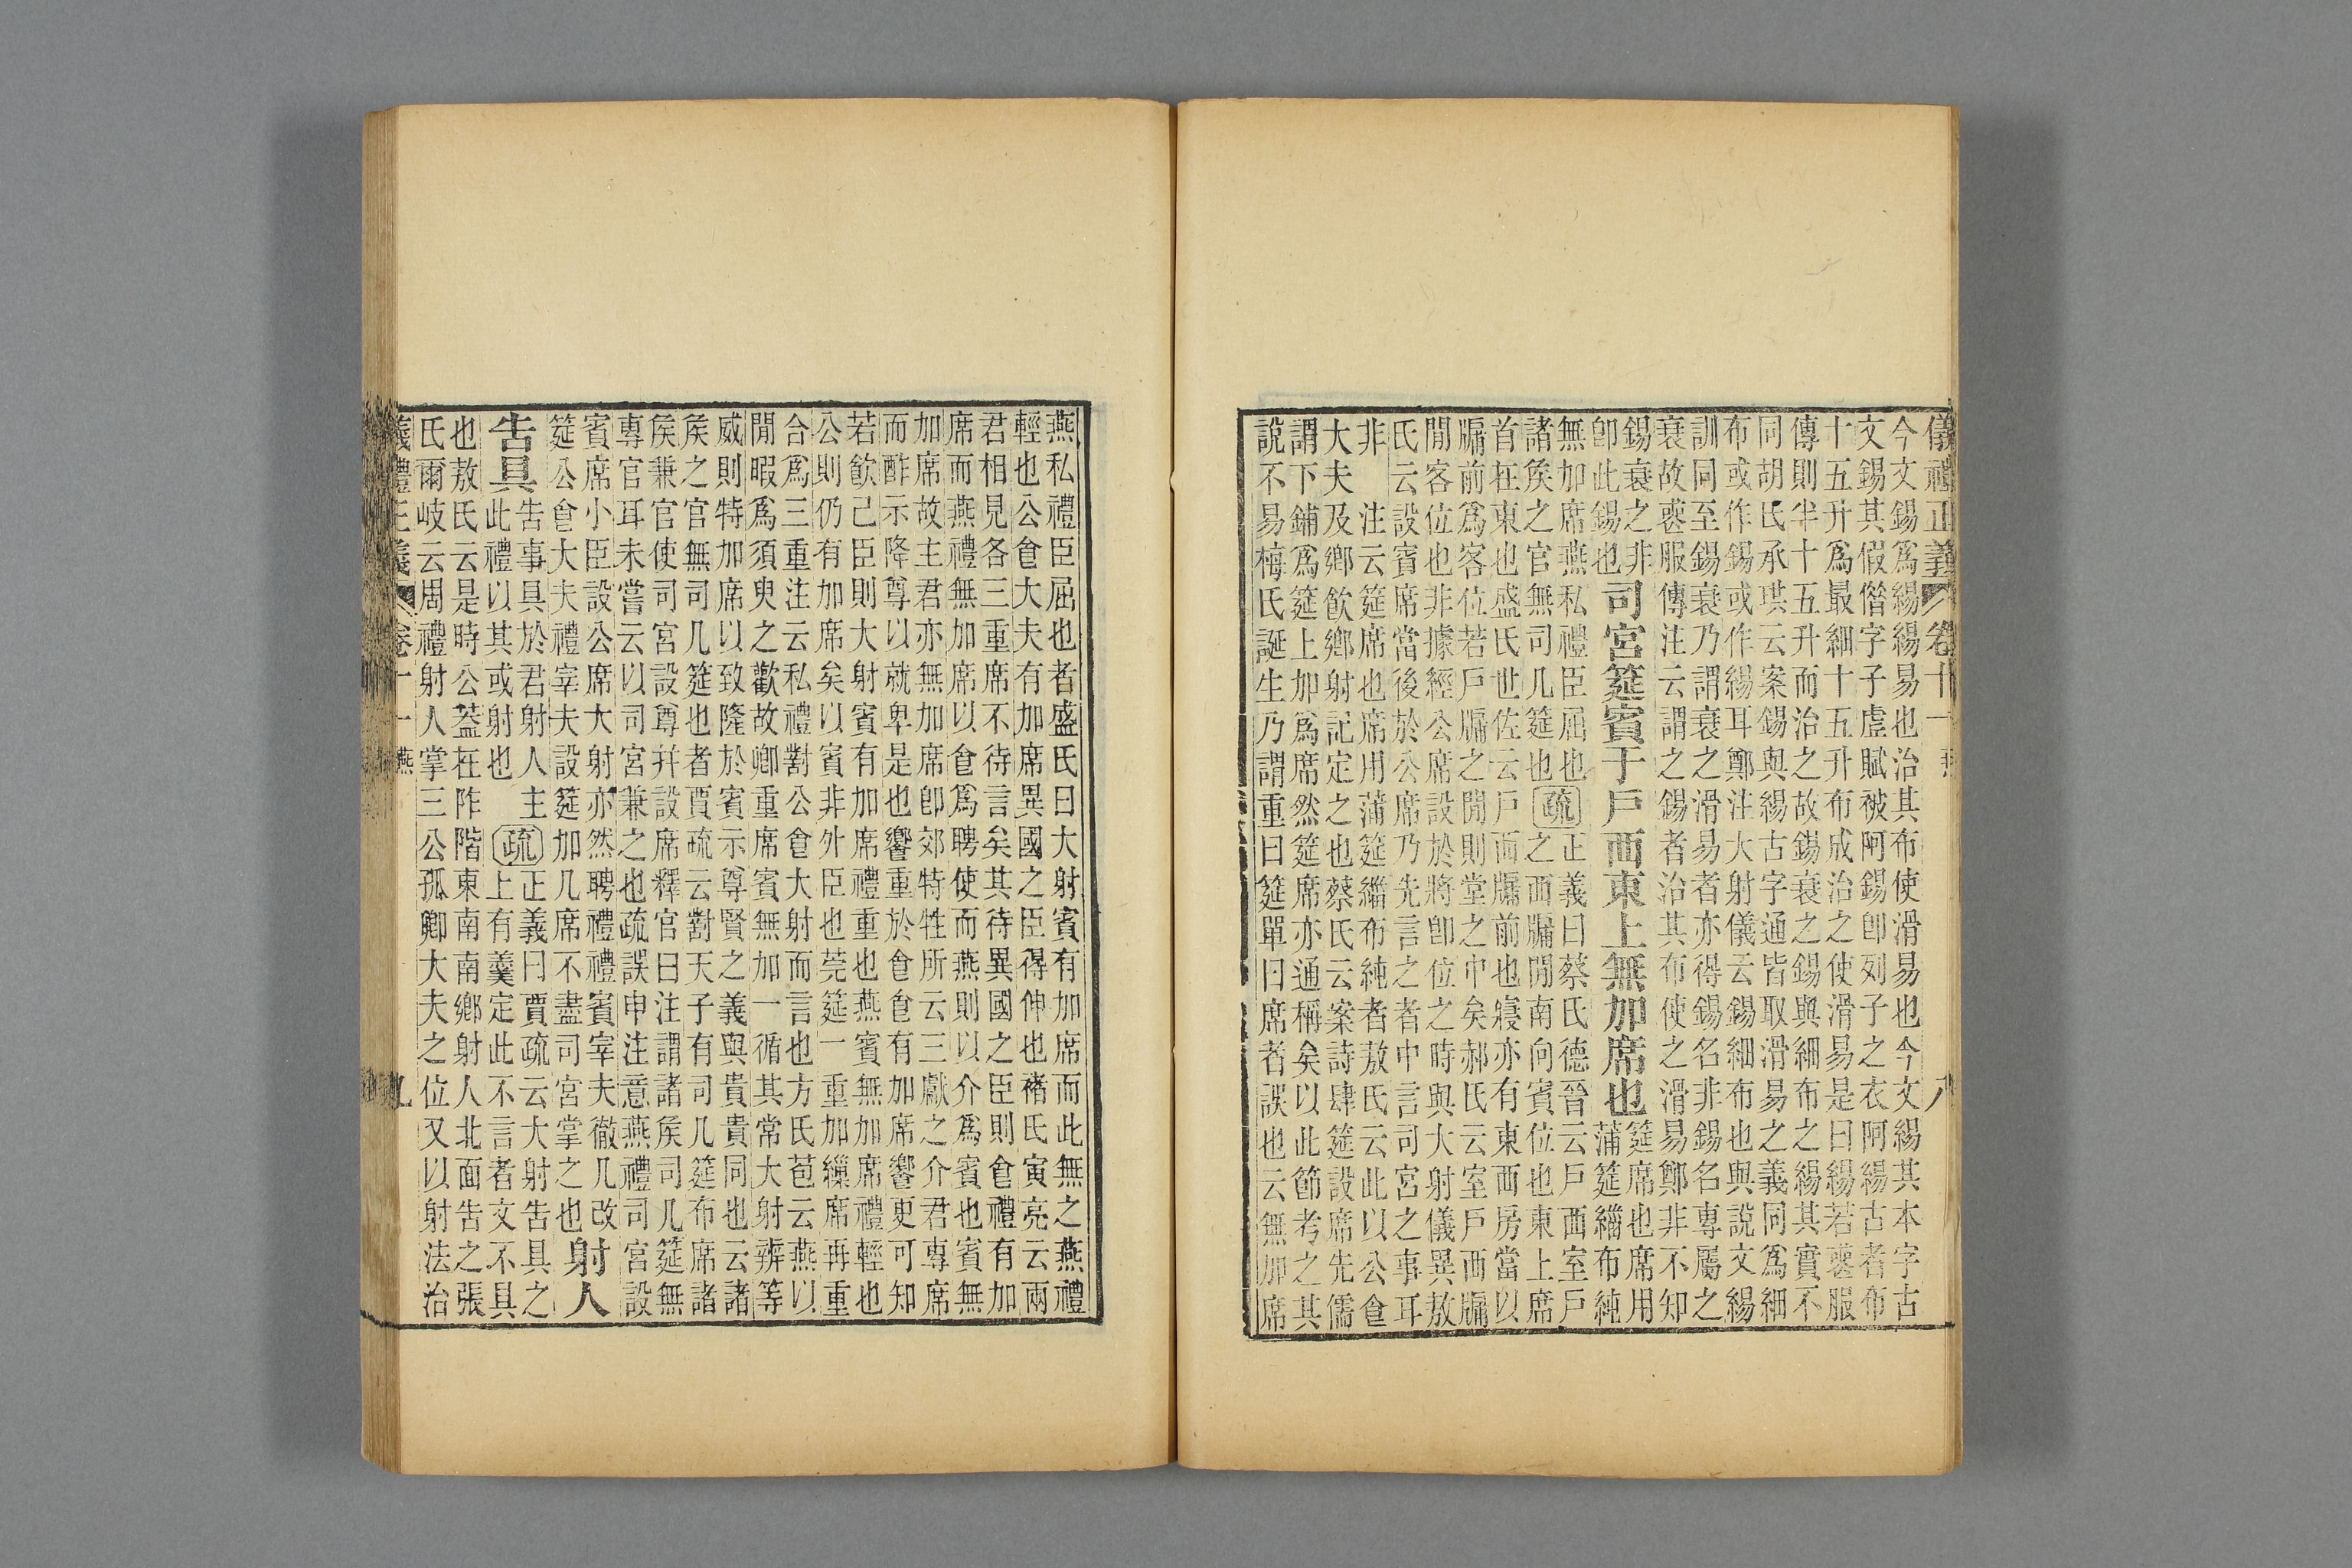 儀禮正義 卷十一 燕 八
今文錫爲緆緆易也治其布使滑易也今文緆其本字古
文錫其假偕字子虛賦被阿錫卽列子之衣阿緆古者布
十五升爲最細十五升布成治之使滑易是曰緆若喪服
傳則半十五升而治之故錫衰之錫與細布之緆其實不
同胡氏承珙云案錫與緆古字通皆取滑易之義同爲細
布或作錫或作緆耳鄭注大射儀云錫細布也與說文緆
訓同至錫衰乃謂衰之滑易者亦得錫名非錫名專屬之
衰故喪服傳注云謂之錫者治其布使之滑易鄭非不知
錫衰之非
卽此錫也
司宮筵賓于戶西東上無加席也
筵席也席用
蒲筵緇布純
無加席燕私禮臣屈也
諸侯之官無司几筵也
疏
正義曰蔡氏德晉云戶西室戶
之西牖閒南向賓位也東上席
首在東也盛氏世佐云戶西牖前也寢亦有東西房當以
牖前爲客位若戶牖之閒則堂之中矣郝氏云室戶西牖
閒客位也非據經公席設於將卽位之時與大射儀異敖
氏云設賓席當後於公席乃先言之者中言司宮之事耳
非 注云筵席也席用蒲筵緇布純者敖氏云此以公食
大夫及鄉飮鄉射記定之也蔡氏云案詩肆筵設席先儒
謂下鋪爲筵上加爲席然筵席亦通稱矣以此節考之其
說不易梅氏誕生乃謂重曰筵單曰席者誤也云無加席
燕私禮臣屈也者盛氏曰大射賓有加席而此無之燕禮
輕也公食大夫有加席異國之臣得伸也褚氏寅亮云兩
君相見各三重席不待言矣其待異國之臣則食禮有加
席而燕禮無加席以食爲聘使而燕則以介爲賓也賓無
加席故主君亦無加席卽郊特牲所云三獻之介君專席
而酢示降尊以就卑是也饗重於食食有加席饗更可知
若飮己臣則大射賓有加席禮重也燕賓無加席禮輕也
公則仍有加席矣以賓非外臣也莞筵一重加繅席再重
合爲三重注云私禮對公食大射而言也方氏苞云燕以
閒暇爲須臾之歡故卿重席賓無加一循其常大射辨等
威則特加席以致隆於賓示尊賢之義與貴貴同也云諸
侯之官無司几筵也者賈疏云對天子有司几筵布席諸
侯兼官使司宮設尊幷設席釋官曰注謂諸侯司几筵無
專官耳未嘗云以司宮兼之也疏誤申注意燕禮司宮設
賓席小臣設公席大射亦然聘禮禮賓宰夫徹几改
筵公食大夫禮宰夫設筵加几席不盡司宮掌之也
射人
告具
告事具於君射人主
此禮以其或射也
疏
正義曰賈疏云大射告具之
上有羹定此不言者文不具
也敖氏云是時公蓋在阼階東南南鄉射人北面告之張
氏爾岐云周禮射人掌三公孤卿大夫之位又以射法治
儀禮正義 卷十一 燕 九